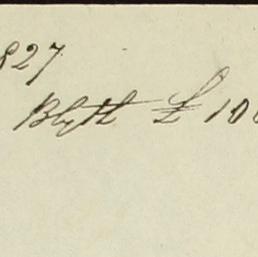 827
Blyth £ 100